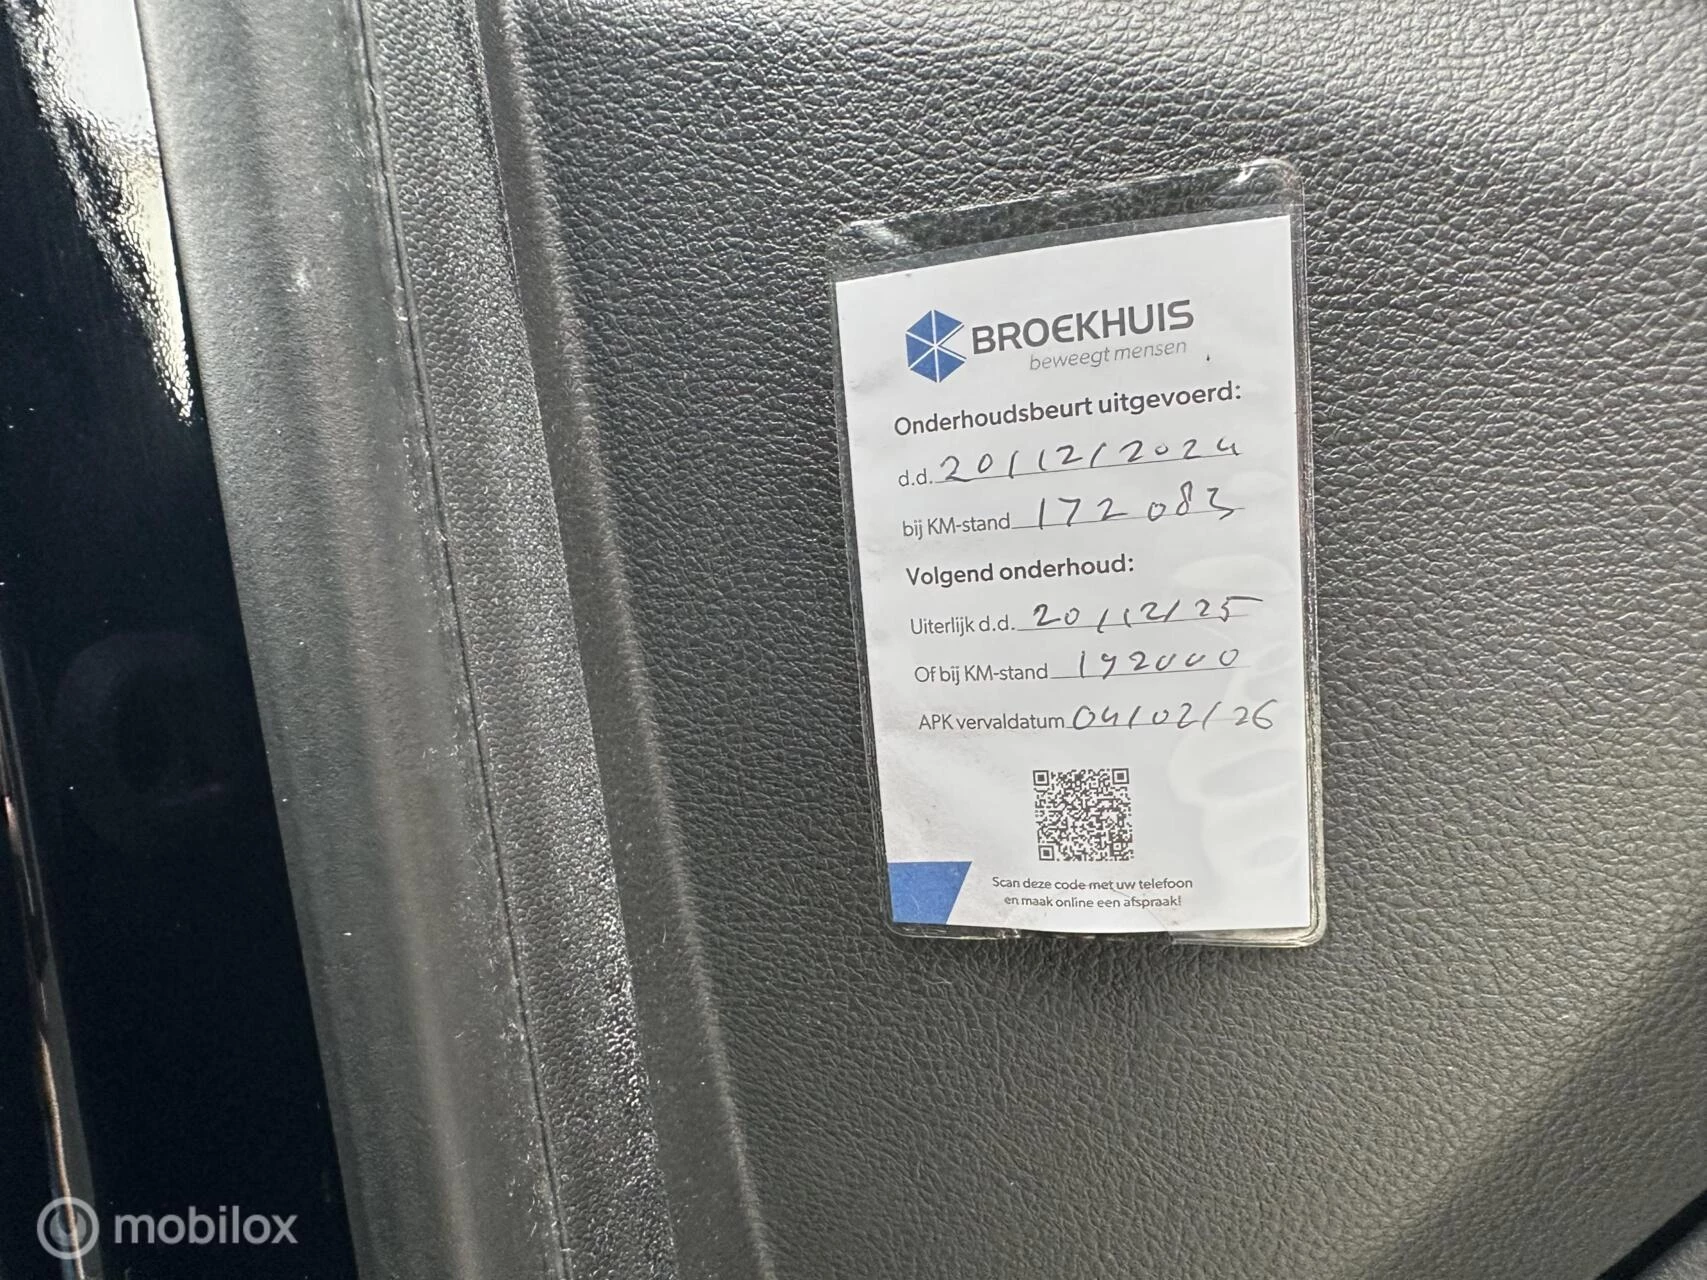 BROEKHUIS
beweegt mensen
Onderhoudsbeurt uitgevoerd:
d.d. 20/12/2024
bij KM-stand 172 083
Volgend onderhoud:
Uiterlijk d.d. 20/12/25
Of bij KM-stand 192000
APK vervaldatum 04/02/26
Scan deze code met uw telefoon
en maak online een afspraak!
mobilox